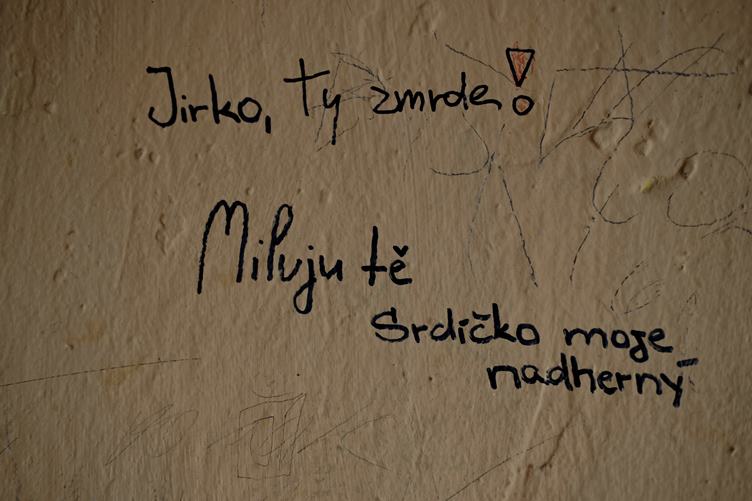 Jirko, ty zmrde!
Miluju tě
Srdíčko moje
nadherný